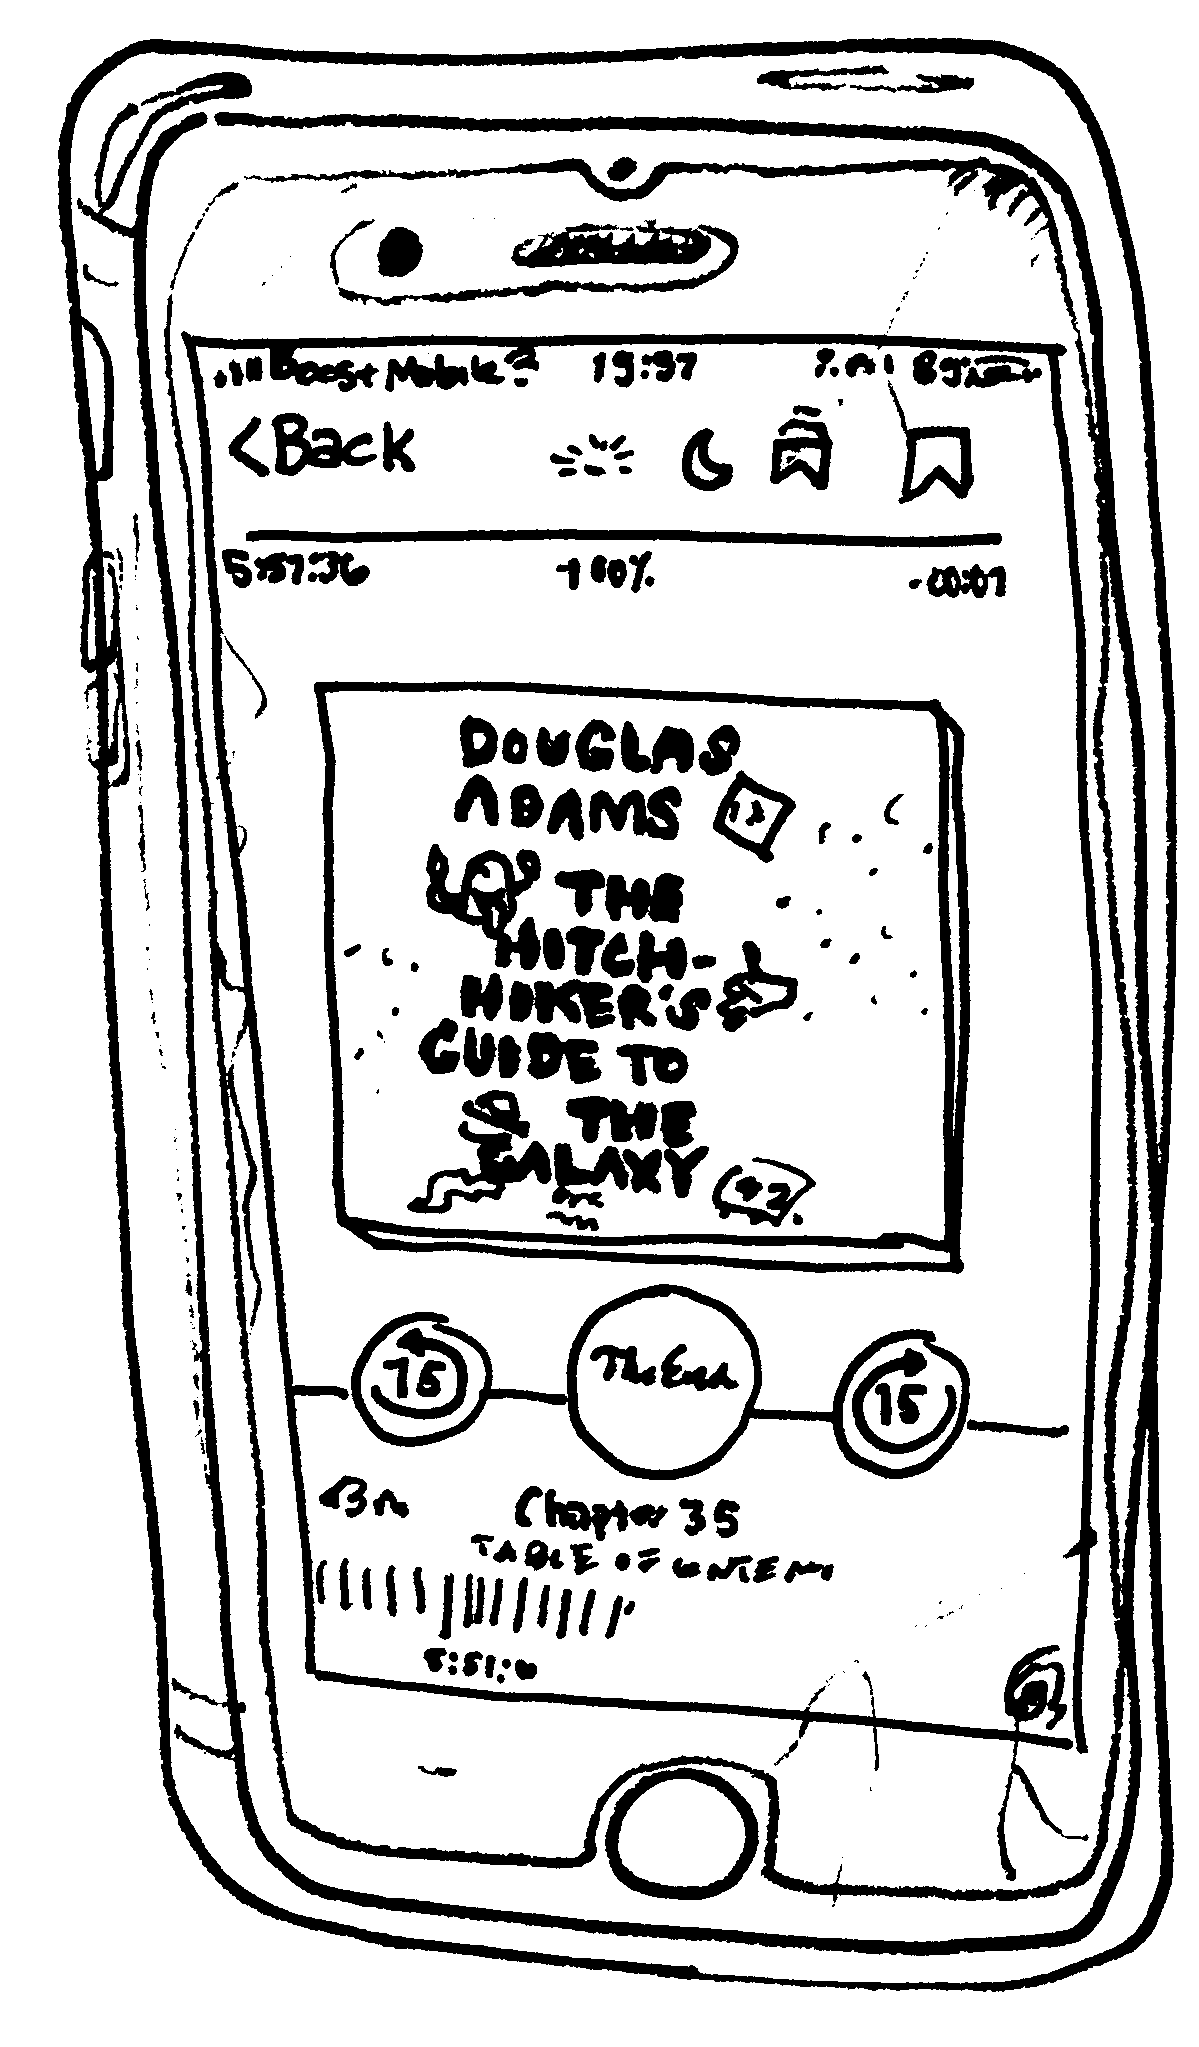 Boost Mobile 19:37
<Back
5:57:36 100% -00:01
DOUGLAS
ADAMS
THE
HITCH-
HIKER'S
GUIDE TO
THE
GALAXY
42
15 The End 15
Chapter 35
TABLE OF CONTENTS